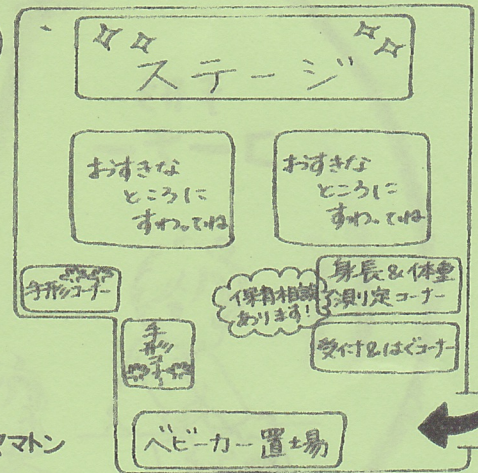 ステージ
おすきな
ところに
すわってね
おすきな
ところに
すわってね
手形コーナー
保育相談
あります!
身長&体重
測定コーナー
手形コーナー
ベビーカー置場
マトン